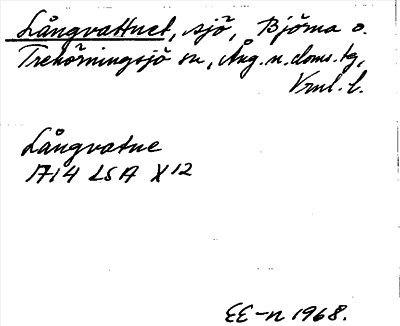 Långvattnet, sjö, Björna o.
Trehörningsjö sn, Ång. n. doms. tg,
Vrnl. l.
Långvatne
1714 LSA X12
EE-n 1968.